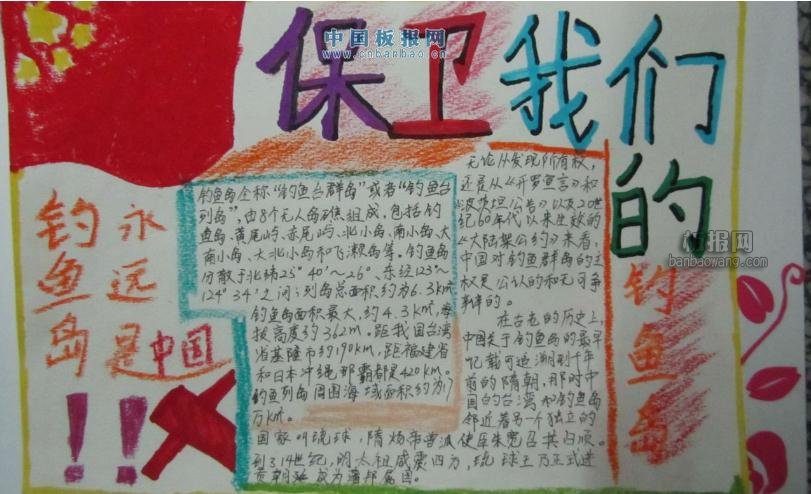 保卫我们
的
钓鱼岛
中国板报网
www.cnbanbao.cn
板报网
banbaowang.com
永远是中国
钓鱼岛
!!
钓鱼岛全称“钓鱼台群岛”或者“钓鱼台
列岛”,由8个无人岛礁组成,包括钓
鱼岛、黄尾屿、赤尾屿、北小岛、南小岛、大
南小岛、大北小岛和飞濑岛等。钓鱼岛
分散于北纬25°40′~26°、东经123°~
124°34′之间;列岛总面积约为6.3km²
钓鱼岛面积最大,约4.3km²,海
拔高度约362m。距我国台湾
省基隆市约190km,距福建省
和日本冲绳那霸都是420km。
钓鱼列岛周围海域面积约为17
万km²。
无论从发现所有权,
还是从《开罗宣言》和
《波茨坦公告》以及20世
纪60年代以来生效的
《大陆架公约》来看,
中国对钓鱼群岛的主
权是公认的和无可争
辩的。
在古老的历史上,
中国关于钓鱼岛的最早
记载可追溯到千年
前的隋朝,那时中
国的台湾和钓鱼岛
邻近着另一个独立的
国家叫琉球,隋炀帝曾派使臣朱宽召其归顺。
到了14世纪,明太祖威震四方,琉球王乃正式进
贡朝 成为藩邦属国。